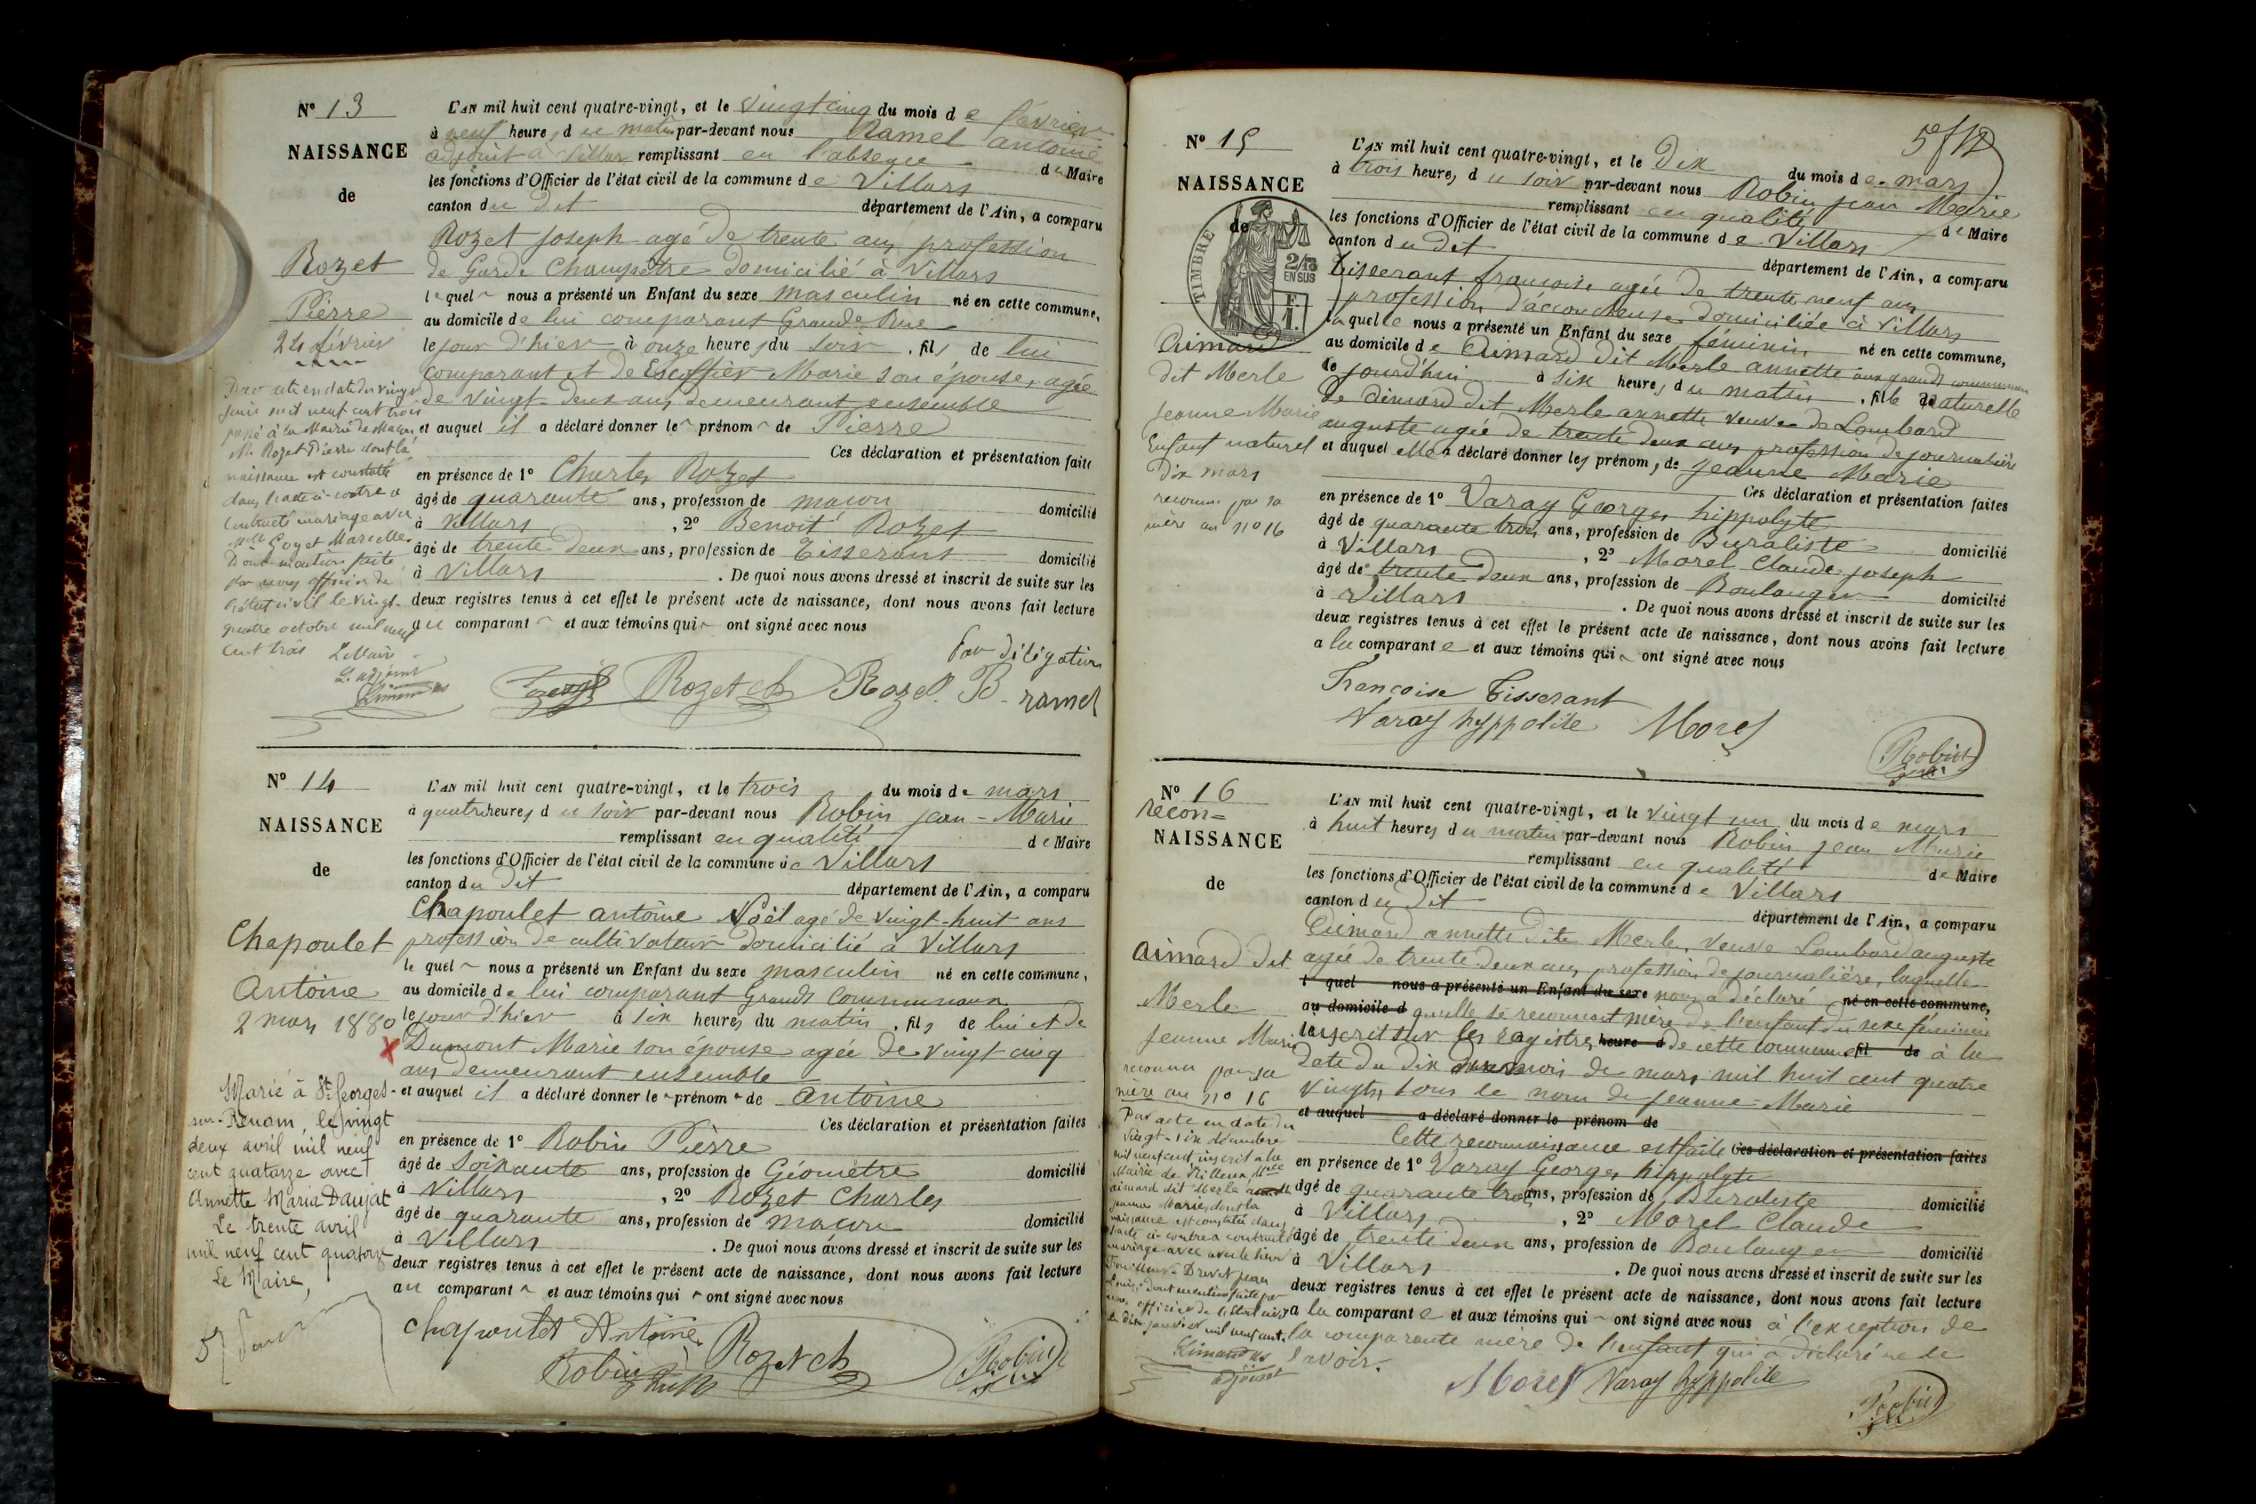 N° 13
NAISSANCE
de
Rozet
Pierre
24 février
Par acte en date du vingt
juin mil neuf cent trois
passé à la Mairie de Macon
Mr Rozet Pierre dont la
naissance est constatée
dans l'acte ci-contre a
contracté mariage avec
Mlle Goyet Marcelle.
Dont mention faite
par nous officier de
l'état civil le vingt-
quatre octobre mil neuf
cent trois
Le Maire
L'adjoint
L'AN mil huit cent quatre-vingt, et le vingt cinq du mois de février
à neuf heures du matin par-devant nous Ramel antoine
adjoint à Villars remplissant en l'absence du Maire
les fonctions d'Officier de l'état civil de la commune de Villars
canton du dit département de l'Ain, a comparu
Rozet Joseph agé de trente ans profession
de Garde Champêtre domicilié à Villars
lequel nous a présenté un Enfant du sexe masculin né en cette commune,
au domicile de lui comparant Grande Rue
le jour d'hier à onze heures du soir, fils de lui
comparant et de Escoffier Marie son épouse, agée
de vingt-deux ans demeurant ensemble
et auquel il a déclaré donner le prénom de Pierre
Ces déclaration et présentation faites
en présence de 1° Charles Rozet
âgé de quarante ans, profession de maçon domicilié
à Villars, 2° Benoit Rozet
âgé de trente deux ans, profession de Tisserant domicilié
à Villars. De quoi nous avons dressé et inscrit de suite sur les
deux registres tenus à cet effet le présent acte de naissance, dont nous avons fait lecture
au comparant et aux témoins qui ont signé avec nous
Par délégation
Rozet ch Rozet B ramel
N° 14
NAISSANCE
de
Chapoulet
Antoine
2 mars 1880
Marié à St Georges-
sur-Renom, le vingt
deux avril mil neuf
cent quatorze avec
Annette Maria Daujat
Le trente avril
mil neuf cent quatorze
Le Maire,
L'AN mil huit cent quatre-vingt, et le trois du mois de mars
à quatre heures du soir par-devant nous Robin jean-Marie
remplissant en qualité de Maire
les fonctions d'Officier de l'état civil de la commune de Villars
canton du dit département de l'Ain, a comparu
Chapoulet antoine Noël agé de vingt-huit ans
profession de cultivateur domicilié à Villars
lequel nous a présenté un Enfant du sexe masculin né en cette commune,
au domicile de lui comparant Grands Communaux
le jour d'hier à six heures du matin, fils de lui et de
Dumont Marie son épouse agée de vingt cinq
ans demeurant ensemble
et auquel il a déclaré donner le prénom de antoine
Ces déclaration et présentation faites
en présence de 1° Robin Pierre
âgé de soixante ans, profession de Géomètre domicilié
à Villars, 2° Rozet Charles
âgé de quarante ans, profession de maçon domicilié
à Villars. De quoi nous avons dressé et inscrit de suite sur les
deux registres tenus à cet effet le présent acte de naissance, dont nous avons fait lecture
au comparant et aux témoins qui ont signé avec nous
Chapoulet Antoine Rozet ch Robin
Robin
N° 15
NAISSANCE
de
TIMBRE
2/10 EN SUS
Aimard
dit Merle
Jeanne Marie
Enfant naturel
dix mars
reconnu par sa
mère au n° 16
L'AN mil huit cent quatre-vingt, et le Dix du mois de mars
à trois heures du soir par-devant nous Robin jean Marie
remplissant en qualité de Maire
les fonctions d'Officier de l'état civil de la commune de Villars
canton du dit département de l'Ain, a comparu
Tisserant françoise agée de trente neuf ans
profession d'accoucheuse domiciliée à Villars
laquelle nous a présenté un Enfant du sexe féminin né en cette commune,
au domicile de Aimard dit Merle annette aux grands communaux
le jourd'hui à six heures du matin, fille naturelle
de aimard dit Merle annette veuve de Lombard
auguste agée de trente deux ans profession de journalière
et auquel elle a déclaré donner les prénoms de Jeanne Marie
Ces déclaration et présentation faites
en présence de 1° Varay Georges hippolyte
âgé de quarante trois ans, profession de Buraliste domicilié
à Villars, 2° Morel Claude joseph
âgé de trente deux ans, profession de Boulanger domicilié
à Villars. De quoi nous avons dressé et inscrit de suite sur les
deux registres tenus à cet effet le présent acte de naissance, dont nous avons fait lecture
a la comparante et aux témoins qui ont signé avec nous
Françoise Tisserant
Varay hyppolite Morel
Robin
N° 16
Recon=
NAISSANCE
de
Aimard dit
Merle
Jeanne Marie
reconnu par sa
mère au n° 16
Par acte en date du
vingt-six décembre
mil neuf cent inscrit à la
Mairie de Rillieux Mlle
aimard dit Merle
Jeanne Marie, dont la
naissance est constatée dans
l'acte ci-contre a contracté
mariage avec
Drevet jean
Louis, dont mention faite par
nous, officier de l'état civil
mil neuf cent un
adjoint
L'AN mil huit cent quatre-vingt, et le vingt un du mois de mars
à huit heures du matin par-devant nous Robin jean Marie
remplissant en qualité de Maire
les fonctions d'Officier de l'état civil de la commune de Villars
canton du dit département de l'Ain, a comparu
Aimard annette dite Merle, veuve Lombard auguste
agée de trente-deux ans, profession de journalière, laquelle
l quel nous a présenté un Enfant du sexe nous a déclaré né en cette commune,
au domicile d quelle se reconnait mère de l'enfant du sexe féminin
inscrit sur les registres heure d de cette commune fil de à la
date du dix du mois de mars mil huit cent quatre
vingts, sous le nom de Jeanne-Marie
et auquel a déclaré donner le prénom de
Cette reconnaissance est faite Ces déclaration et présentation faites
en présence de 1° Varay Georges hippolyte
âgé de quarante trois ans, profession de Buraliste domicilié
à Villars, 2° Morel Claude
âgé de trente deux ans, profession de Boulanger domicilié
à Villars. De quoi nous avons dressé et inscrit de suite sur les
deux registres tenus à cet effet le présent acte de naissance, dont nous avons fait lecture
a la comparante et aux témoins qui ont signé avec nous à l'exception de
la comparante mère de l'enfant qui a déclaré ne le
savoir.
Morel Varay hyppolite
Robin